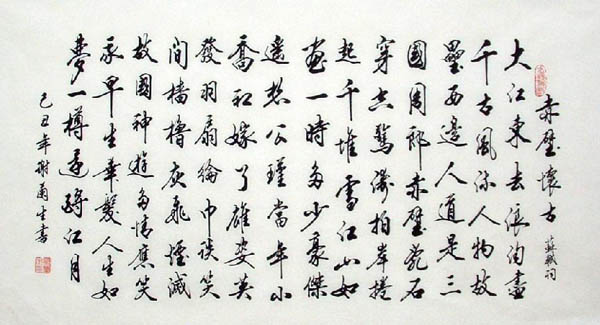 赤壁懷古 蘇軾詞
大江東去浪淘盡
千古風流人物故
壘西邊人道是三
國周郎赤壁亂石
穿空驚濤拍岸捲
起千堆雪江山如
畫一時多少豪傑
遙想公瑾當年小
喬初嫁了雄姿英
發羽扇綸巾談笑
間檣櫓灰飛煙滅
故國神遊多情應笑
我早生華髮人生如
夢一樽還酹江月
己丑年謝蘭生書